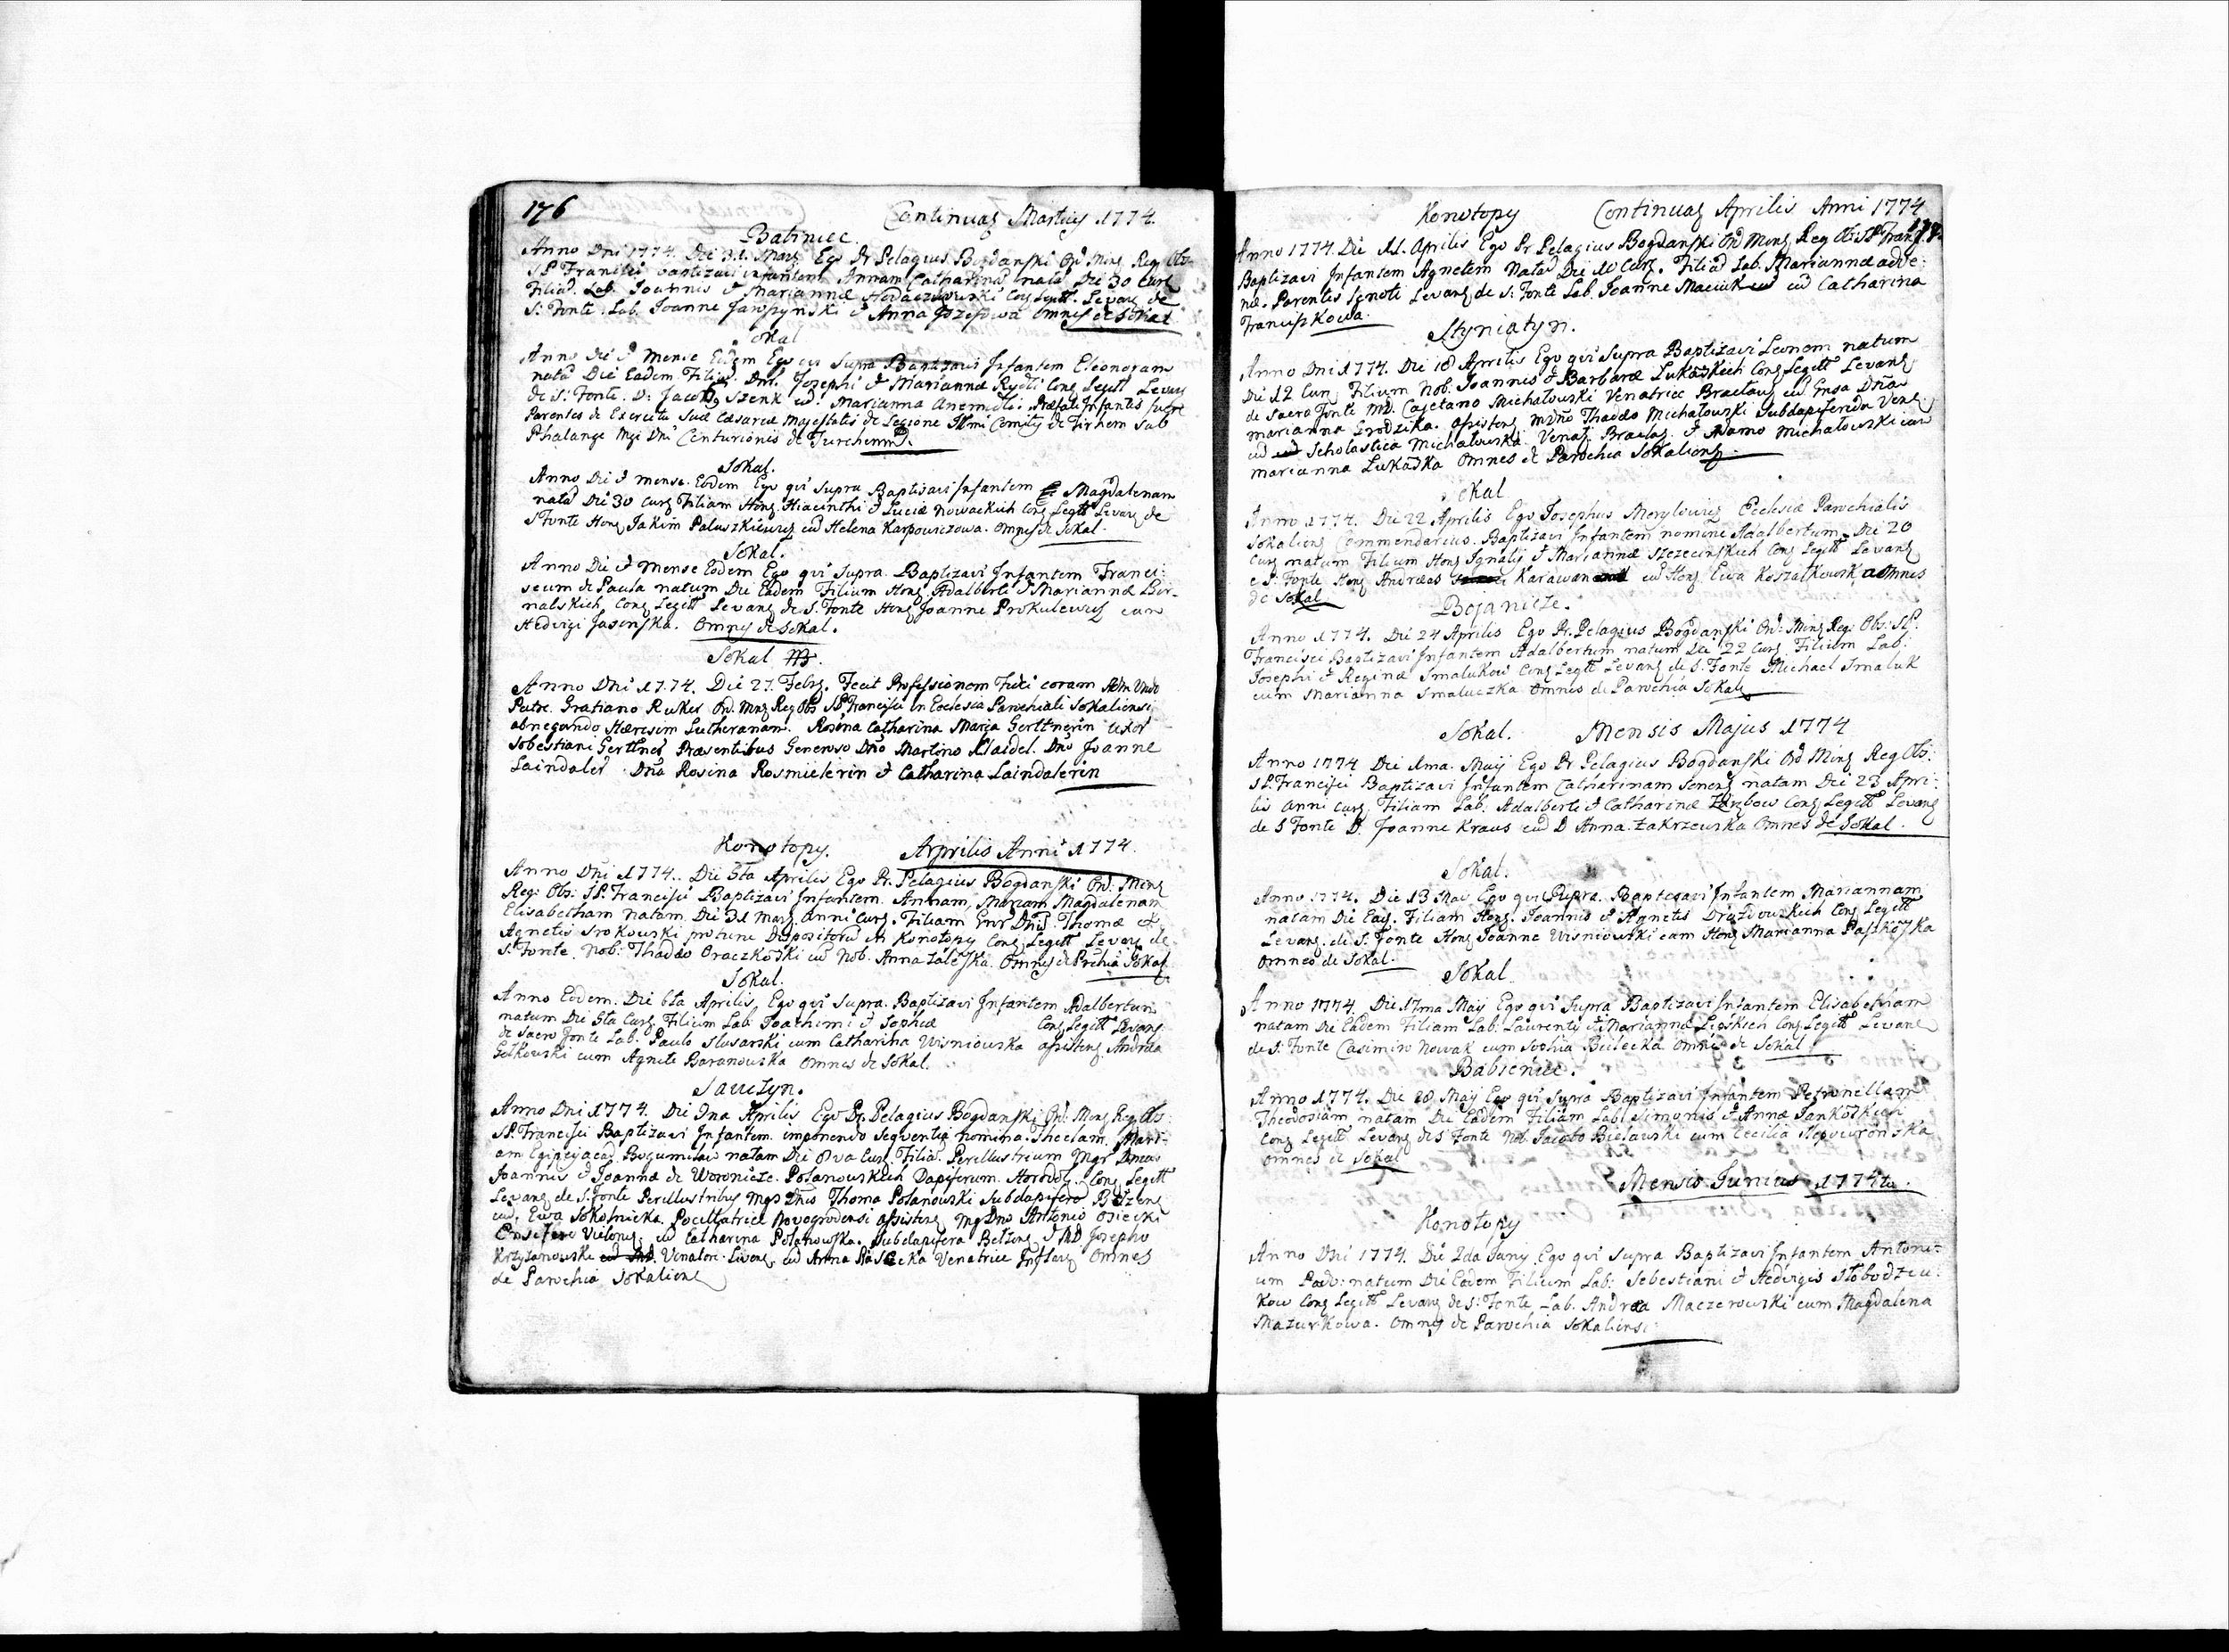 176
Continuaõ Martij 1774.
Babiniec.
Anno Dni 1774. Die 31. Marz Ego Pr Pelagius Bogdanski Ord Minz Reg Obs
S P Francisci baptizavi infantem Annam Catharina nata Die 30 Curz
Filia Lab. Joannis et Mariannæ Conz Legitt. Levanz de
S: Fonte. Lab. Joanne Jawszynski et Anna Jozefowa Omnes de Sokal
Sokal
Anno Die et Mense Eodem Ego qui Supra Baptizavi Infantem Eleonoram
nata Die Eadem Filia Dni. Josephi et Mariannæ Rydti Conz Legitt Levanz
de S: Fonte. D: Jacobo Szenk cu: Marianna Præfati Infantis
Parentes de Exercitu Suæ Cæsareæ Majestatis de Legione Illmi Comitis de Tirhem Sub
Phalange Mgi Dni Centurionis de
Sokal.
Anno Die et mense Eodem Ego qui Supra Baptizavi Infantem Magdalenam
nata Die 30 Curz Filiam Honz Hiacinthi et Luciæ Nowackich Conz Legitt Levanz de
S Fonte Honz Jakim Paluszkiewicz cu Helena Karpowiczowa. Omnes de Sokal.
Sokal.
Anno Die et Mense Eodem Ego qui Supra. Baptizavi Infantem Franci:
scum de Paula natum Die Eadem Filium Honz Adalberti et Mariannæ Ber-
nalskich Conz Legitt Levanz de S. Fonte Honz Joanne Prokulewicz cum
Hedvigi Jasenska. Omnes de Sokal.
Sokal
Anno Dni 1774. Die 27. Febrz. Fecit Professionem Fidei coram Adm Undo
Patre Gratiano Ruker Ord. Minz Reg Obs SP Francisci in Ecclesia Parochiali Sokaliensi
abnegando Hæresim Lutheranam. Rosina Catharina Maria Gerttnerin Uxor
Sebestiani Gerttner Præsentibus Generoso Dno Martino Klaidel. Dno Joanne
Laindaler. Dna Rosina Rosmielerin et Catharina Laindalerin
Konotopy. Aprilis Anni 1774.
Anno Dni 1774. Die 5ta Aprilis Ego Pr. Pelagius Bogdanski Ord: Minz
Reg: Obs: SP. Francisci Baptizavi Infantem. Annam, Mariam Magdalenam
Elisabetham natam Die 31 Marz anni Curz. Filiam Gnr Dni. Thomæ et
Agnetis Srokowski protunc Dispositoru in Konotopy Conz Legitt Levanz de
S: Fonte. Nob: Thaddo Oraczkoski cu Nob. Anna Zaleska. Omnes de Prchia Sokal.
Sokal.
Anno Eodem. Die 6ta Aprilis, Ego qui Supra. Baptizavi Infantem Adalbertum
natum Die 5ta Curz Filium Lab Joachimi et Sophiæ Conz Legitt Levanz
de Sacro Fonte Lab. Paulo Slusarski cum Catharina Wisniowska assistenz Andrea
Golkowski cum Agnete Baranowska Omnes de Sokal.
Sawczyn.
Anno Dni 1774. Die 9na Aprilis Ego Pr. Pelagius Bogdanski Ord: Minz Reg Obs:
SP. Francisci Baptizavi Infantem. imponendo Seqventia nomina. Theclam, Mari-
am Egipcyacad Bogumilam natam Die 8va Curz. Filia. Perillustrium Mgr Dnoru
Joannis et Joannæ de Woronicze. Polanowskich Dapiferum. Horodl. Conz Legitt
Levanz de S. Fonte Perillustribus Mgs Dnis Thoma Polanowski Subdapifero Belzens
cu. Ewa Sokolnicka Pocillatrice Novogrodensi assistenz Mg Dno Antonio Osiecki
Ensifero Vielonz. cu Catharina Polanowska. Subdapifera Belzenz et MD Josepho
Krzyżanowski Venatore Livonz. cu Anna Venatrice Omnes
de Parochia Sokalienz
Konotopy Continuaõ Aprilis Anni 1774
177.
Anno 1774. Die 11. Aprilis Ego Pr Pelagius Bogdanski Ord Minz Reg Obs: SP Fran
Baptizavi Infantem Agnetem Nata Die 10 Curz. Filia Lab. Mariannæ adve:
næ. Parentis Ignoti Levanz de S: Fonte Lab. Joanne Maciuk cu Catharina
Franciszkowa.
Styniatyn.
Anno Dni 1774. Die 18 Aprilis Ego qui Supra Baptizavi Leonem natum
Die 12 Curz Filium Nob. Joannis et Barbaræ Lukaskich Conz Legitt Levanz
de Sacro Fonte MD. Cajetano Michałowski Venatrice Bracław cu Gnsa Dna
Marianna Grodzka. Assistenz MDno Thaddo Michałowski Subdapiferida
cu Scholastica Michałowska Venat: Braclaz. et Adamo Michałowski cum
Marianna Lukaska Omnes de Parochia Sokalienz.
Sokal
Anno 1774. Die 22 Aprilis Ego Josephus Ecclesiæ Parochialis
Sokalienz Commendarius. Baptizavi Infantem nomine Adalbertum. Die 20
Curz natum Filium Honz Ignatij et Mariannæ Szczecinskich Conz Legitt Levanz
e S: Fonte Honz Andræas Karawan cu Honz Ewa Koszalkowska Omnes
de Sokal
Bojanicze.
Anno 1774. Die 24 Aprilis Ego Pr. Pelagius Bogdanski Ord: Minz Reg: Obs: SP.
Francisci Baptizavi Infantem Adalbertum natum Die 22 Curz. Filium Lab:
Josephi et Reginæ Smalukow Conz Legitt Levanz de S. Fonte Michael Smaluk
cum Marianna Smaluczka Omnes de Parochia Sokalz
Sokal. Mensis Majus 1774
Anno 1774 Die 1ma. Maij Ego Pr Pelagius Bogdanski Ord Minz Reg Obs:
SP. Francisci Baptizavi Infantem Catharinam Senenz natam Die 23 Apri:
lis anni Curz. Filiam Lab: Adalberti et Catharinæ Conz Legitt Levanz
de S Fonte D. Joanne Kraus cu D Anna Zakrzewska Omnes de Sokal.
Sokal.
Anno 1774. Die 13 Mai Ego qui Supra. Baptizavi Infantem Mariannam
natam Die Eag. Filiam Honz. Joannis et Agnetis Conz Legitt
Levanz. de S: Fonte Honz Joanne Wisniowski cum Honz Marianna Paszkoska
Omnes de Sokal.
Sokal
Anno 1774. Die 17ma Maij Ego qui Supra Baptizavi Infantem Elisabetham
natam Die Eadem Filiam Lab: Laurentij et Mariannæ Lipskich Conz Legitt Levanz
de S: Fonte Casimiro Nowak cum Sophia Bielecka Omnes de Sokal
Babieniec.
Anno 1774. Die 20 Maij Ego qui Supra Baptizavi Infantem Petronellam
Theodosiam natam Die Eadem Filiam Lab. Simonis et Annæ Jankoskich
Conz Legitt Levanz de S Fonte Nob Jacobo Bielawski cum Cecilia
Omnes de Sokal
Mensis Junius 1774to.
Konotopy
Anno Dni 1774. Die 2da Junij Ego qui Supra Baptizavi Infantem Antoni-
um Pado: natum Die Eadem Filium Lab: Sebestiani et Hedvigis Słobodziu:
kow Conz Legitt Levanz de S: Fonte Lab. Andrea Maczerowski cum Magdalena
Mazurkowa. Omnes de Parochia Sokaliensi.